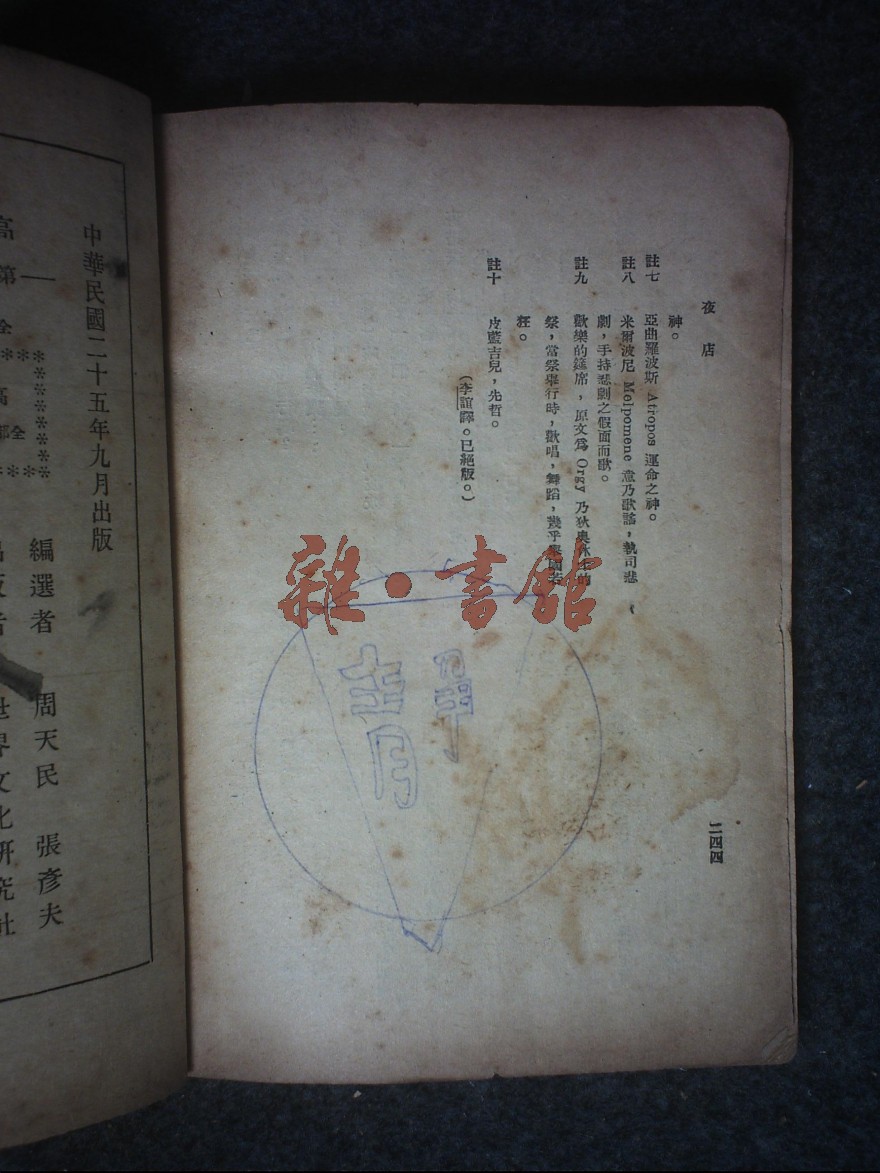 夜店
二四四
神。
註七 亞曲羅波斯 Atropos 運命之神。
註八 米爾波尼 Melpomene 意乃歌謠，執司悲
劇，手持悲劇之假面而歌。
註九 歡樂的筵席，原文爲 Orgy 乃狄奧 的
祭，當祭舉行時，歡唱，舞蹈，幾乎舉國若
狂。
註十 皮藍吉兒，先哲。
（李誼譯。已絕版。）
青
雜·書館
高
第一
全
****
******
高
全
****
編選者 周天民 張彥夫
世界文化研究社
中華民國二十五年九月出版